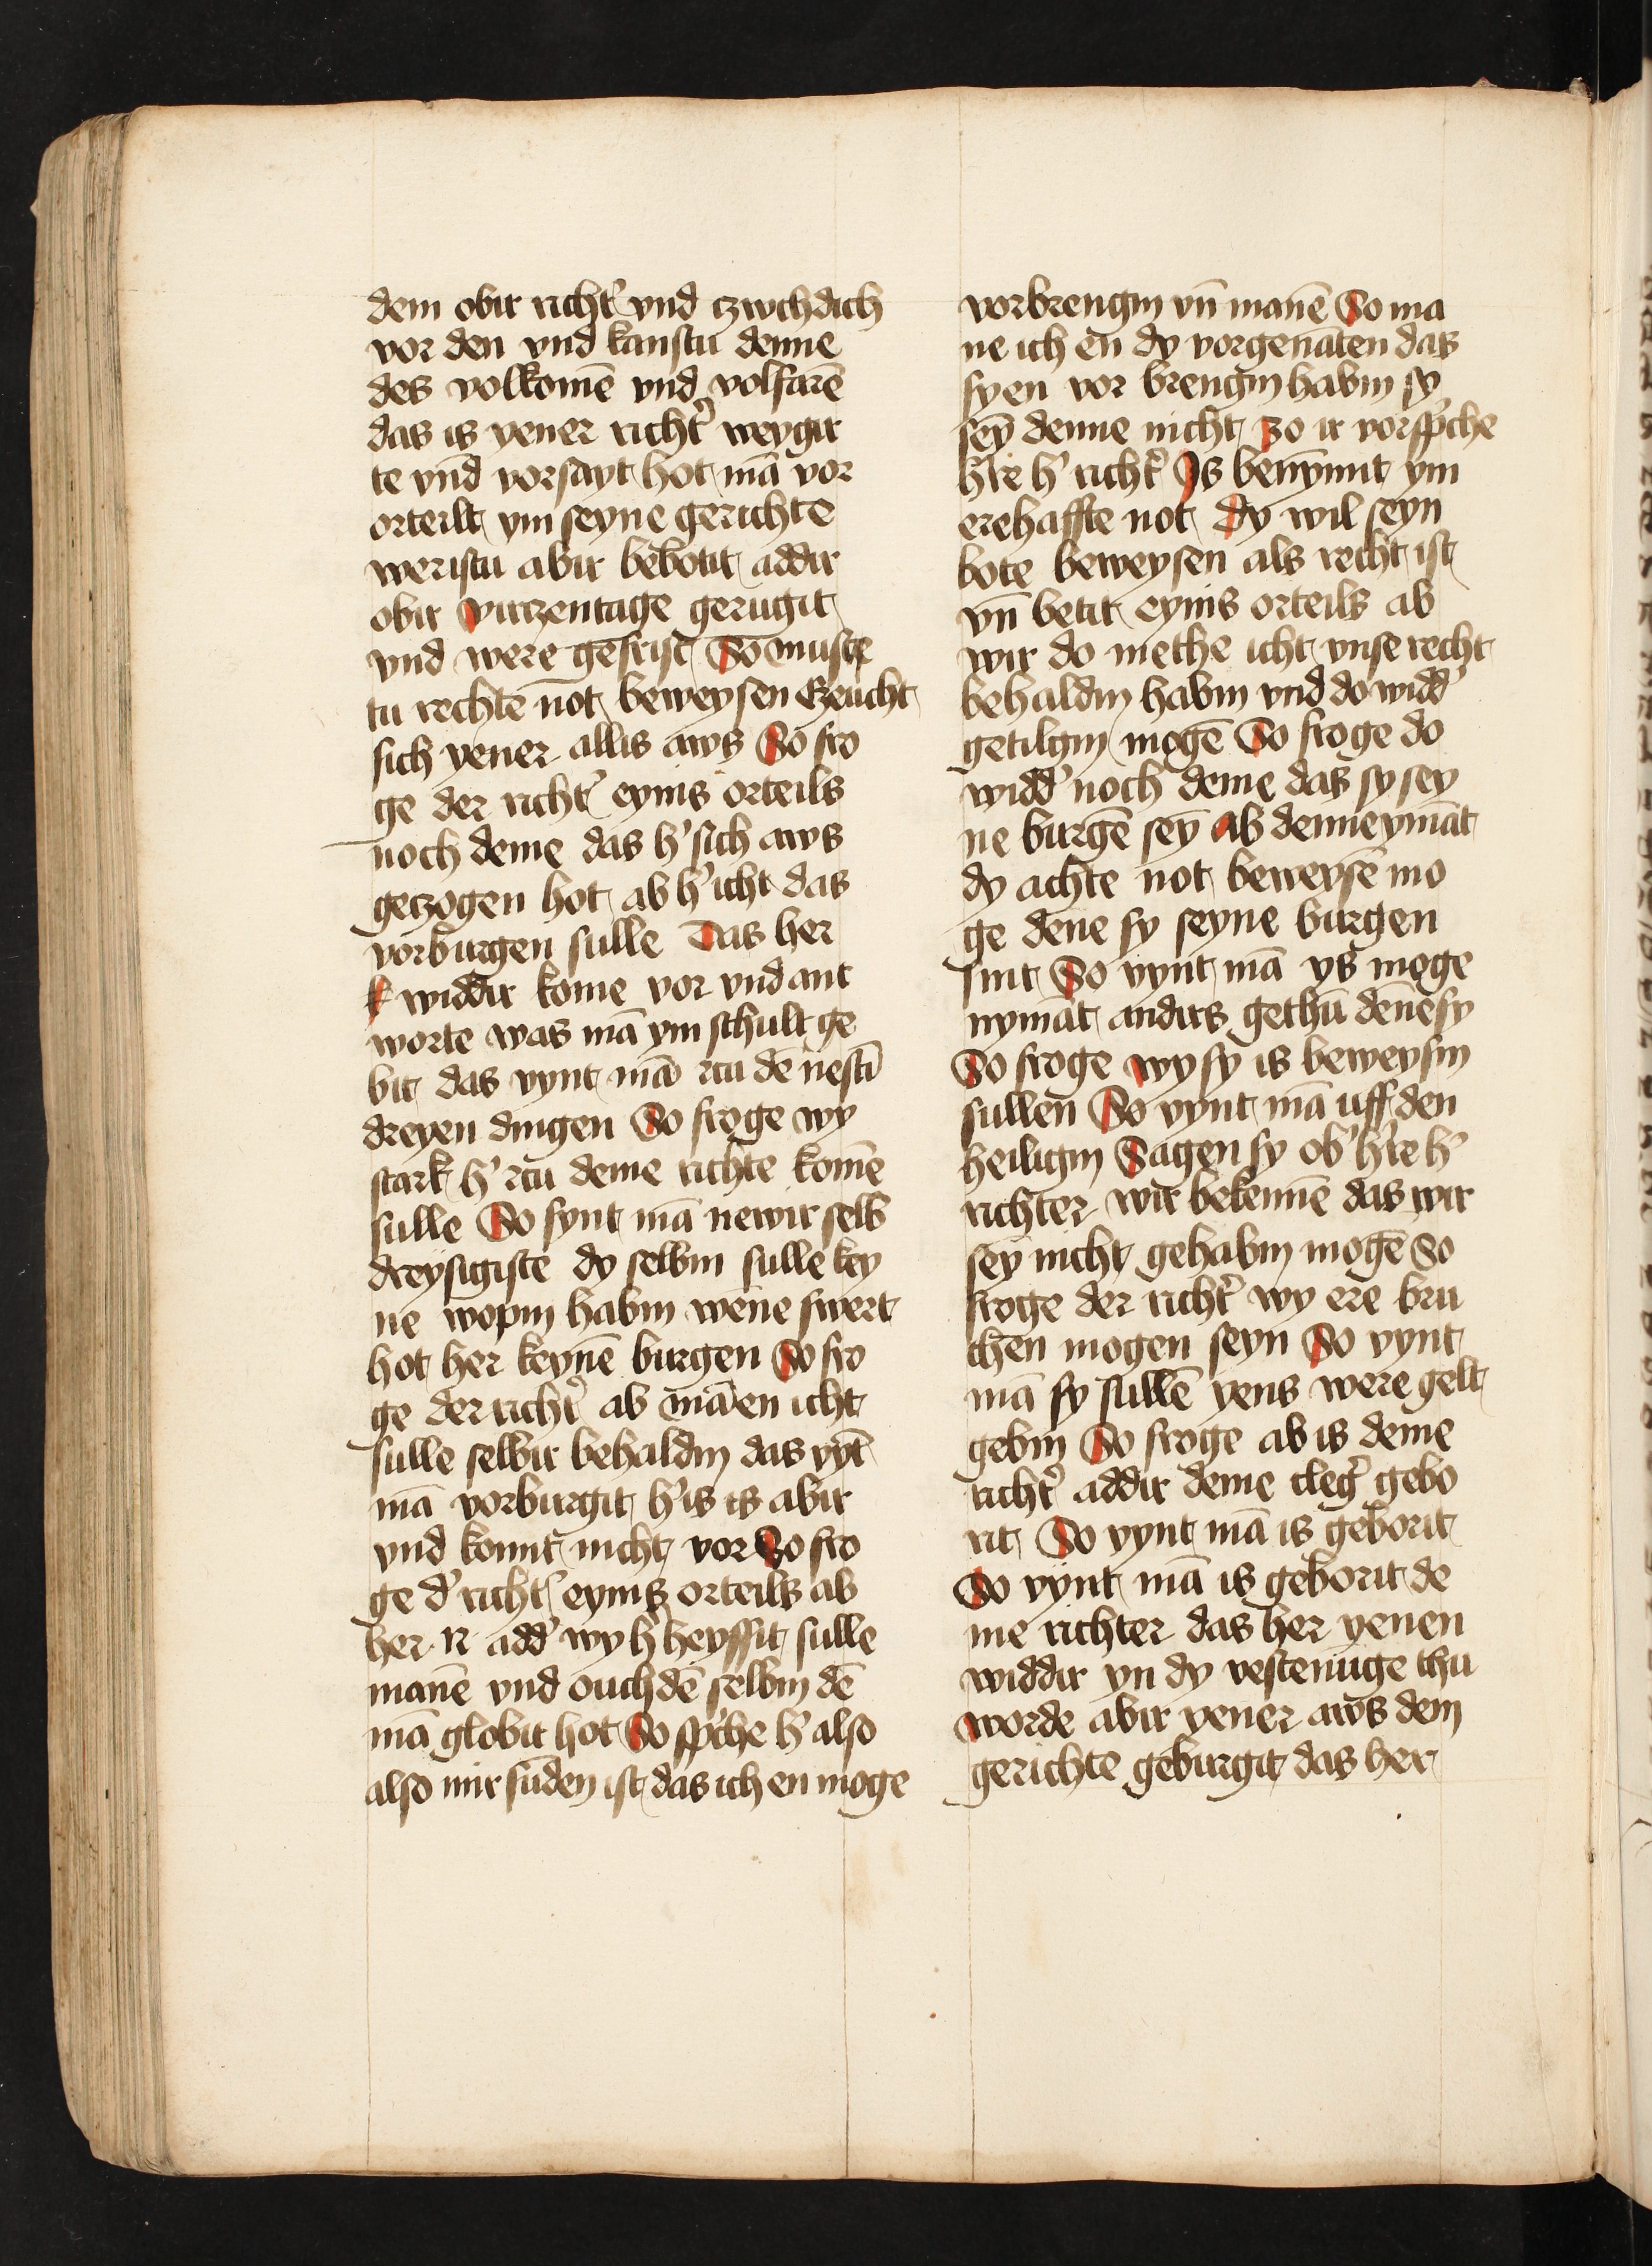 dem obir richt' vnd czwchdich
vor den vnd kanstu denne
des volkomē vnd volfarē
das is yener richt' weygir
te vnd vorsayt hot mā vor
orteilt ym seyne gerichte
weristu abir bebotit addir
obir virczentage gerugit
vnd were gefrist So muste
tu rechte not beweysen Czeucht
sich yener allis aws So fro
ge der richt' eynis orteils
noch deme das h' sich aws
geczogen hot ab h' icht das
vorburgen sulle Das her
widdir kome vor vnd ant
worte was mā ym schult ge
bit das vynt mā czu dē nestī
dreyen dingen So froge wy
stark h' czu deme richte komē
sulle So fynt mā newir selb
dreysigiste dy selbin sulle key
ne wopin habin wēne swert
hot her keynē burgen So fro
ge der richt' ab mā en icht
sulle selbir behaldin das vȳt
mā vorburgit h' is is abir
vnd komt nicht vor So fro
ge d' richt' eynis orteils ab
her N add' wy h' heyssit sulle
manē vnd ouch dē selbin dē
mā globit hot So sp'che h' also
also mir fūden ist das ich en moge
vorbrengin vn̄ manē So ma
ne ich en dy vorgenāten das
sy en vor brengin habin sy
seȳ denne nicht zo ir vorsp'che
h're h' richt' Is benȳmt ym
erehaffte not dy wil seyn
bote beweysen als recht ist
vn̄ betit eynis orteils ab
wir do methe icht vnse recht
behaldin habin vnd do widd'
getilgin mogē So froge do
widd' noch deme das sy sey
ne burgē seȳ ab denne ymāt
dy achte not beweysē mo
ge dēne sy seyne burgen
sint So vynt mā ys moge
nymāt andirs gethū dēne sy
So froge wy sy is beweysin
sullen So vynt mā uff den
heiligin Sagen sy ob' h're h'
richter wir bekennē das wir
sey nicht gehabin mogē So
froge der richt' wy ere bru
chen mogen seyn So vynt
mā sy sullē yens were gelt
gebin So froge ab is deme
richt' addir deme cleg' gebo
rit So vynt mā is geborit
So vynt mā is geborit de
me richter das her yenen
widdir yn dy vestenūge thu
worde abir yener aws dem
gerichte geburgit das her